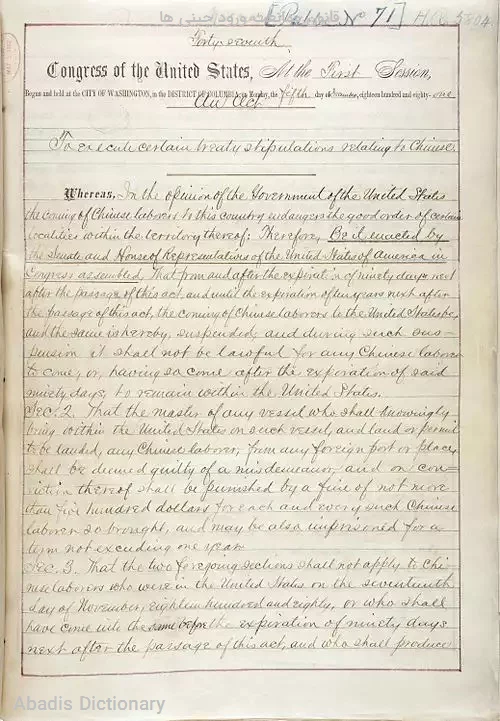 [Public, No 71] H.R. 5804
Forty-seventh
Congress of the United States, At the First Session,
Begun and held at the CITY OF WASHINGTON, in the DISTRICT OF COLUMBIA, on Monday, the fifth day of December, eighteen hundred and eighty-one
An Act
To execute certain treaty stipulations relating to Chinese.
Whereas, In the opinion of the Government of the United States
the coming of Chinese laborers to this country endangers the good order of certain
localities within the territory thereof: Therefore, Be it enacted by
the Senate and House of Representatives of the United States of America in
Congress assembled, That from and after the expiration of ninety days next
after the passage of this act, and until the expiration of ten years next after
the passage of this act, the coming of Chinese laborers to the United States be,
and the same is hereby, suspended; and during such sus-
pension it shall not be lawful for any Chinese laborer
to come, or, having so come after the expiration of said
ninety days, to remain within the United States.
Sec. 2. That the master of any vessel who shall knowingly
bring within the United States on such vessel, and land or permit
to be landed, any Chinese laborer, from any foreign port or place,
shall be deemed guilty of a misdemeanor, and on con=
viction thereof shall be punished by a fine of not more
than five hundred dollars for each and every such Chinese
laborer so brought, and may be also imprisoned for a
term not exceeding one year.
Sec. 3. That the two foregoing sections shall not apply to Chi-
nese laborers who were in the United States on the seventeenth
day of November, eighteen hundred and eighty, or who shall
have come into the same before the expiration of ninety days
next after the passage of this act, and who shall produce
Abadis Dictionary